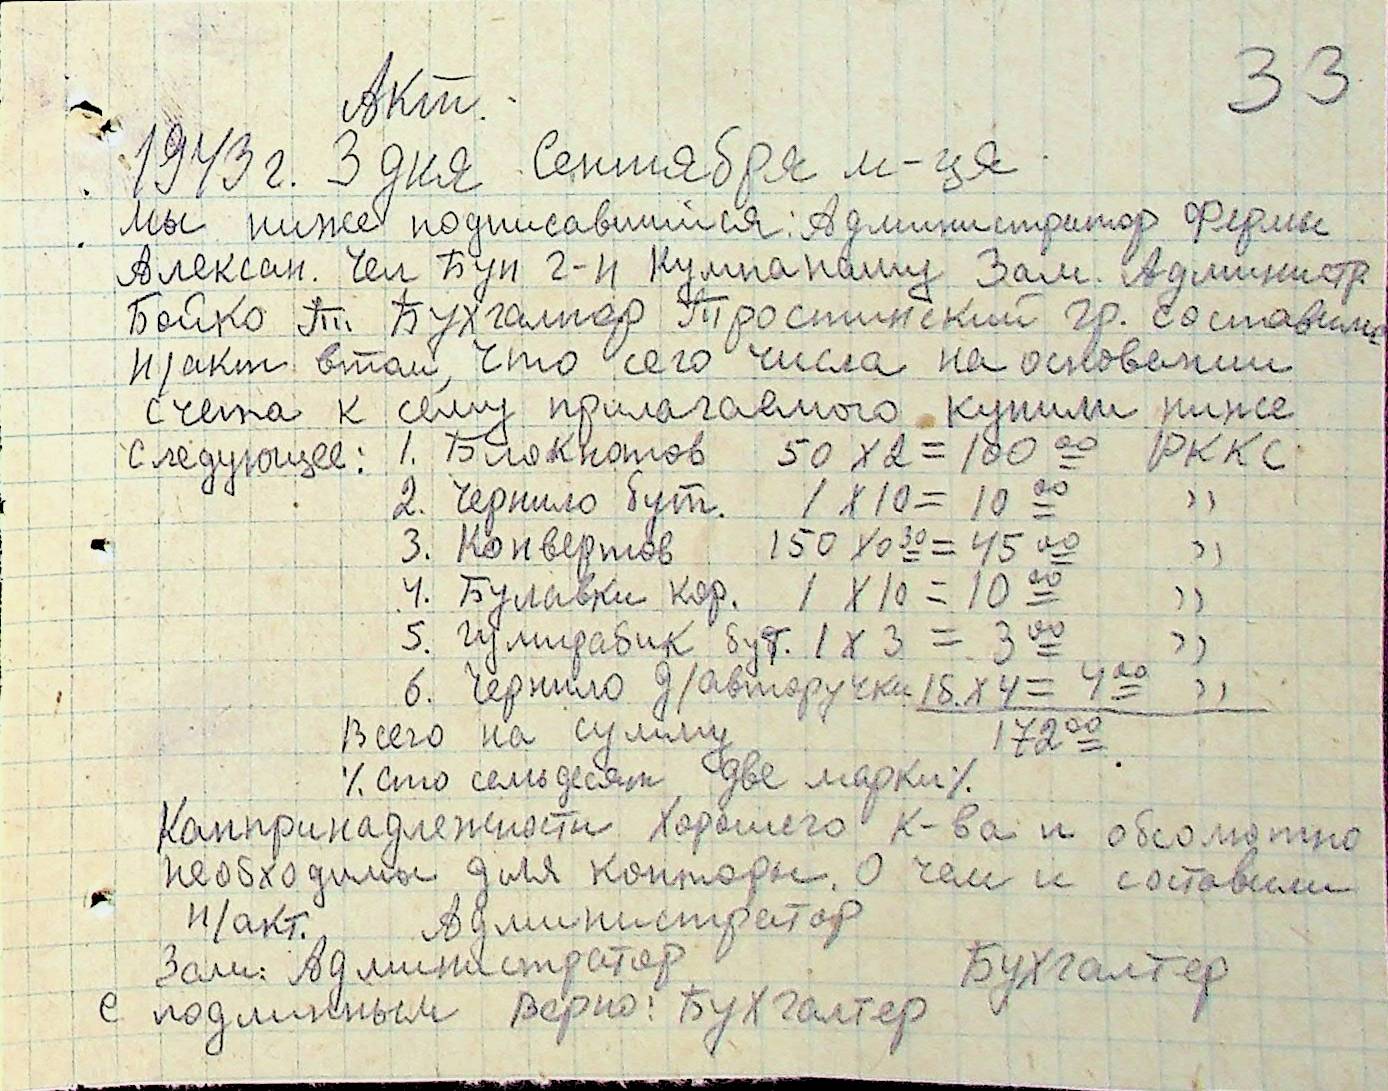 33
Акт.
1943 г. 3 дня Сентября м-ця
мы ниже подписавшийся: Администратор Фермы
Алексан. Чел Бун г-н Кумпанашу Зам. Администр.
Бойко Т. Бухгалтер Тростинский Гр. составили
н/акт втом, что сего числа на основании
счета к сему прилагаемого купили ниже
следующее: 1. Блокнотов 50 х 2 = 100 00 РККС
2. Чернило бут. 1 х 10 = 10 00 ,,
3. Конвертов 150 х 0 30 = 45 00 ,,
4. Булавки кор. 1 х 10 = 10 00 ,,
5. Гумирабик бут. 1 х 3 = 3 00 ,,
6. Чернило д/авторучки 1б. х 4 = 4 00 ,,
Всего на сумму 172 00.
٪ сто семьдесят две марки ٪.
Канпринадлежности хорошего к-ва и обсолютно
необходимы для конторы. О чем и составили
н/акт. Администратор
Зам: Администратор Бухгалтер
С подлинным верно: Бухгалтер